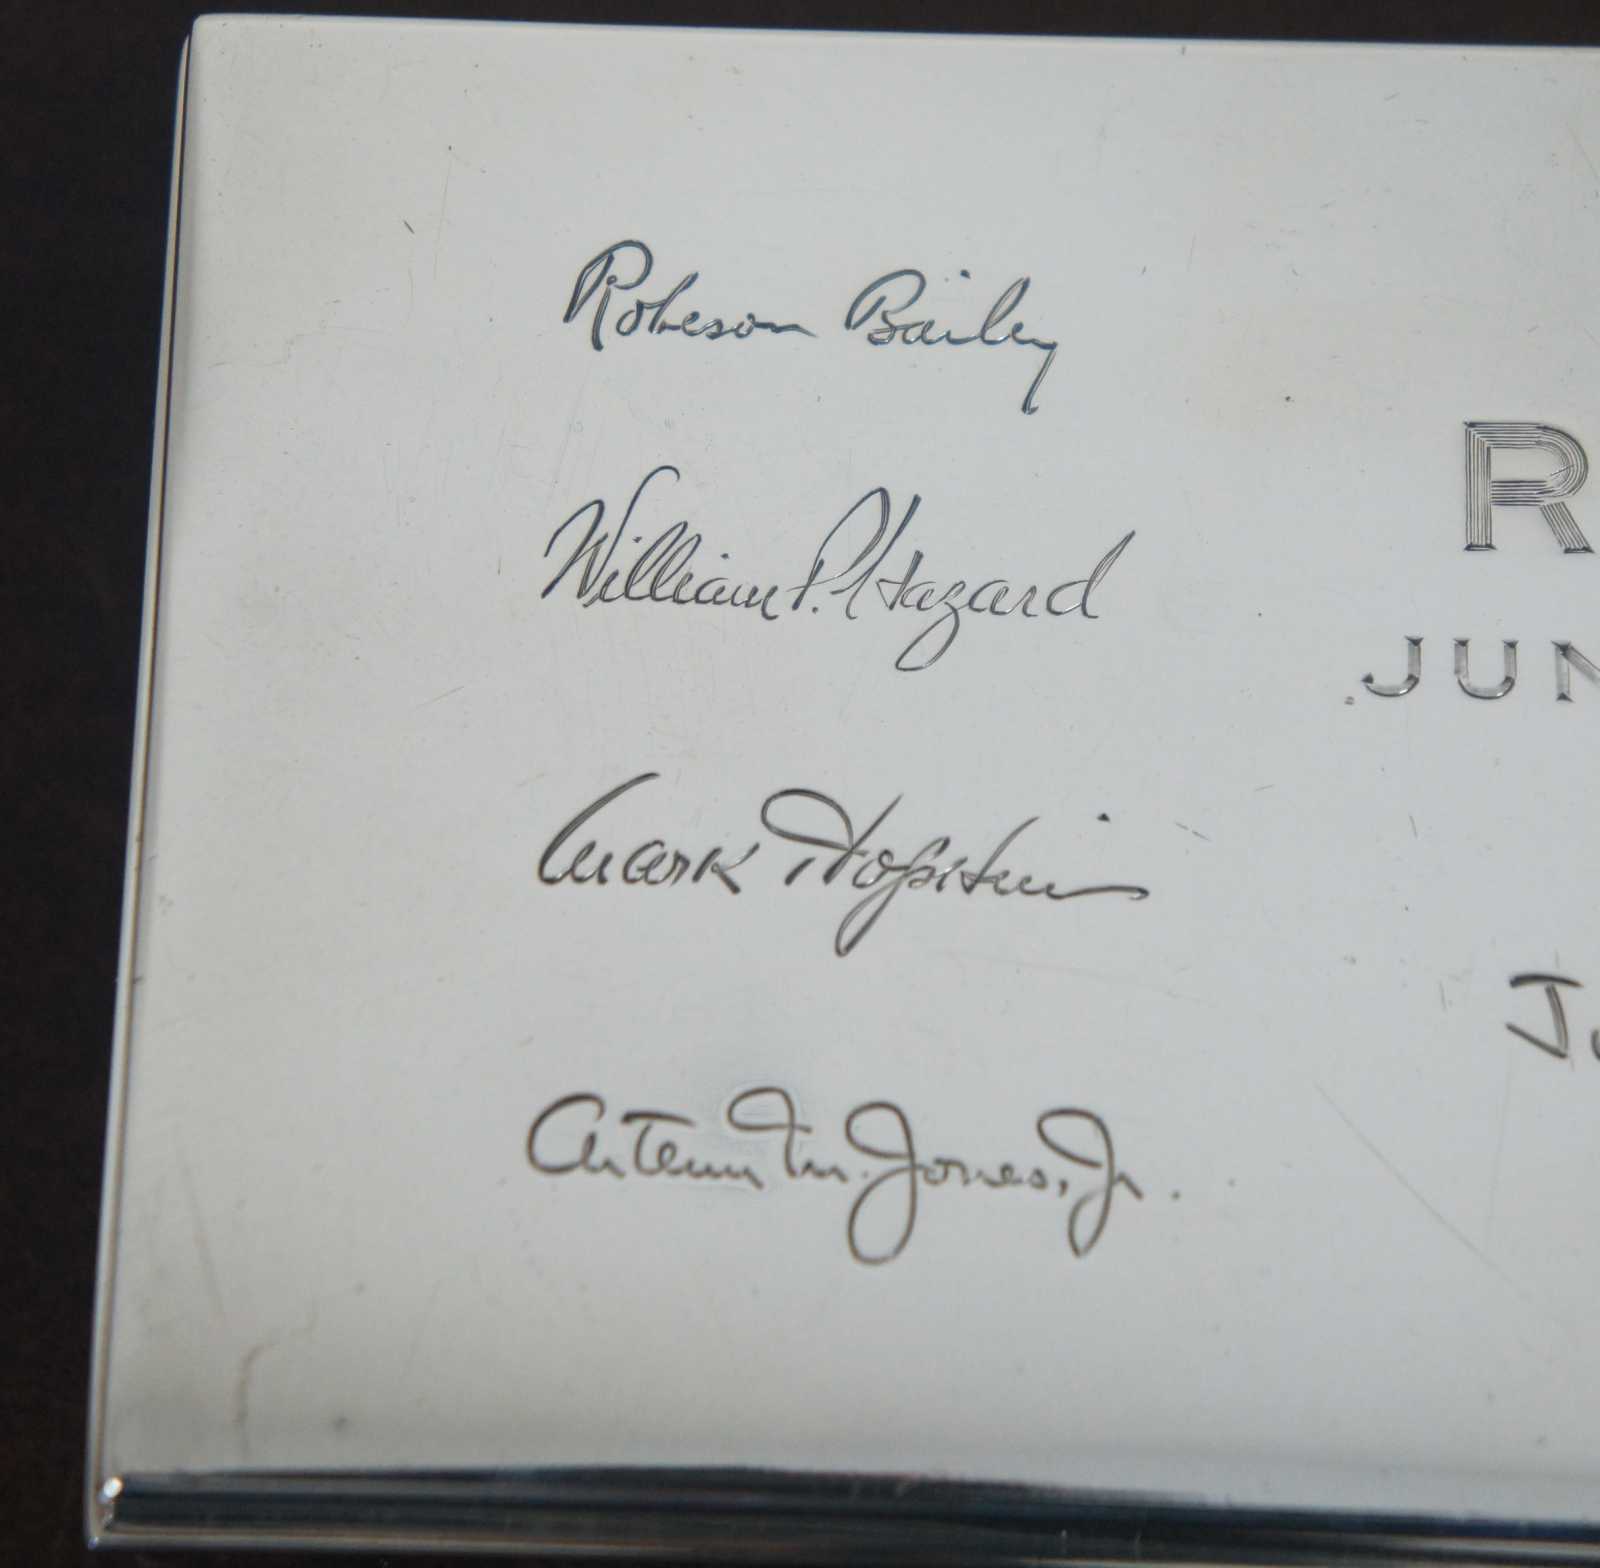 Robeson Bailey
William P. Hazard
Mark Hopkins
M. Jones, Jr.
R
JUN
J